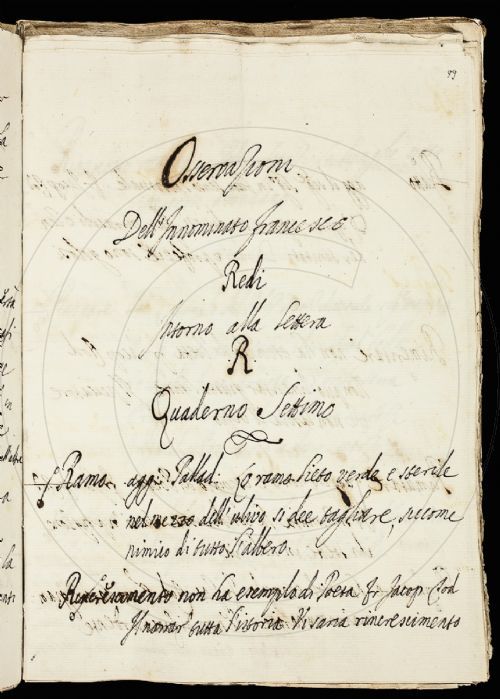 99
Osservazioni
Dell'Innominato Francesco
Redi
Intorno alla lettera
R
Quaderno Settimo
Ramo. agg: Pallad. Lo ramo lieto verde e sterile
nel mezzo dell'ulivo si dee tagliare, siccome
nimico di tutto l'albero.
non ha esempio di Poeta fr Jacop Tod
Il narrar tutta l'istoria Vi saria rincrescimento